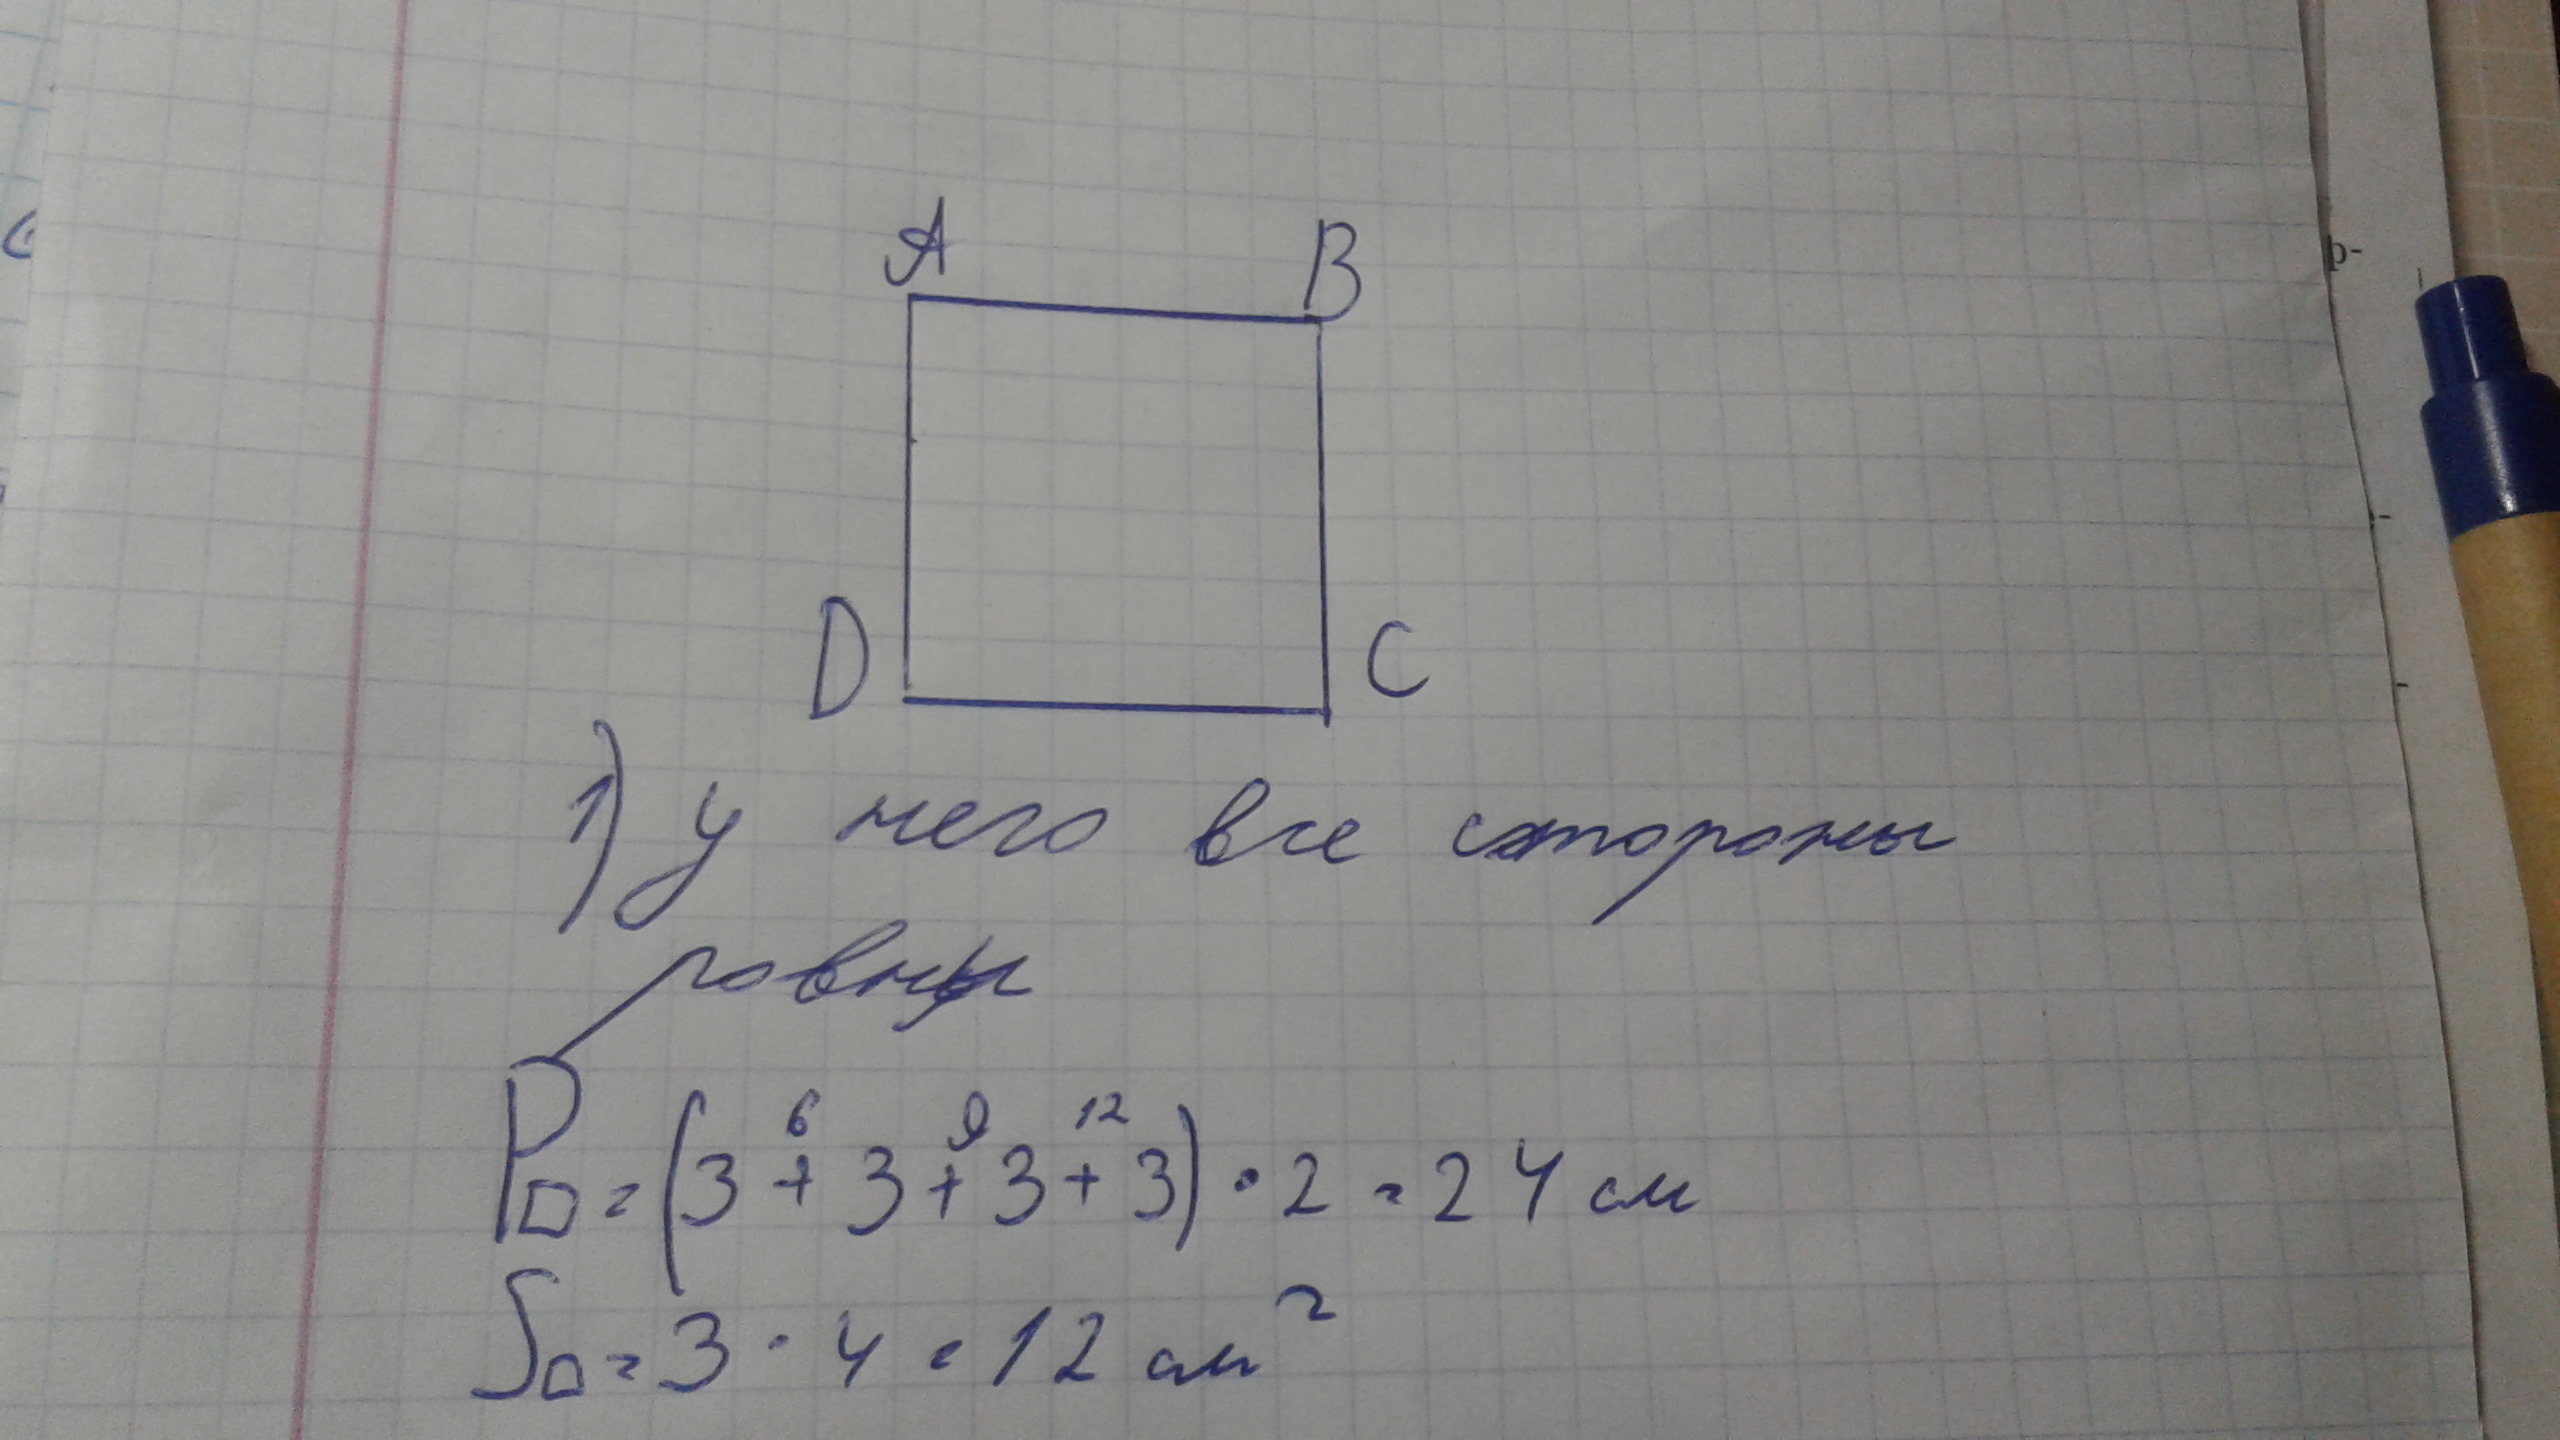 A B
D C
1) У него все стороны
ровны
6 9 12
P□ = (3 + 3 + 3 + 3) · 2 = 24 см
S□ = 3 · 4 = 12 см²
р-